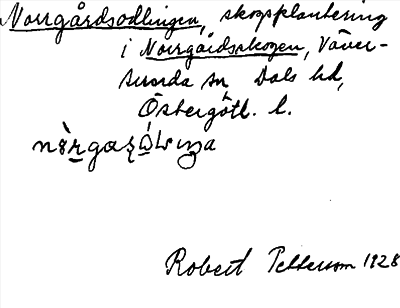 Norrgårdsodlingen, skogsplantering
i Norrgårdsskogen, Väver-
sunda sn Dals hd,
Östergötl. l.
Robert Pettersson 1928